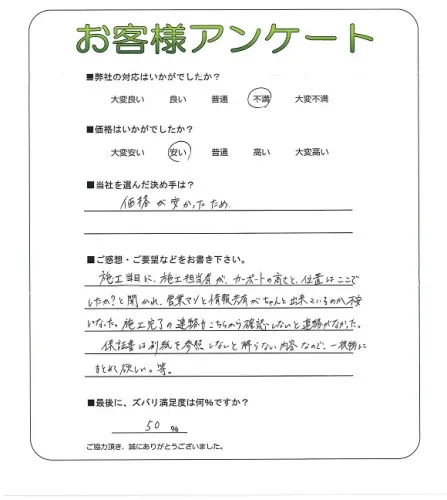 お客様アンケート
■弊社の対応はいかがでしたか?
大変良い 良い 普通 不満 大変不満
■価格はいかがでしたか?
大変安い 安い 普通 高い 大変高い
■当社を選んだ決め手は?
価格が安かったため.
■ご感想・ご要望などをお書き下さい。
施工当日に、施工担当者が、カーポートの高さと、位置はここで
したか?と聞かれ、営業マンと情報共有がちゃんと出来ているのか不安
になった。施工完了の連絡もこちらから確認しないと連絡がなかった。
保証書は別紙を参照しないと解らない内容なので、一枚に
まとめて欲しい。等。
■最後に、ズバリ満足度は何%ですか?
50 %
ご協力頂き、誠にありがとうございました。